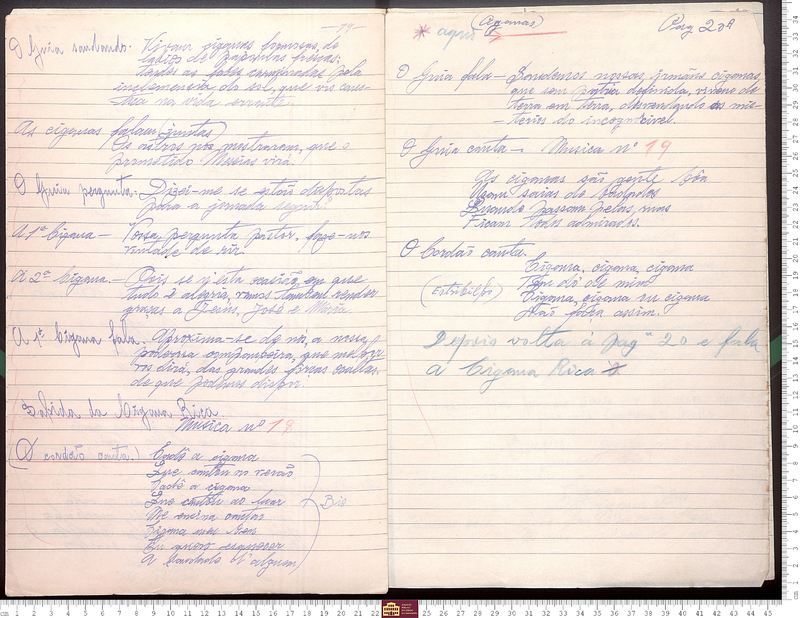 -19-
O Guia saudando. Vivam ciganas formosas, de
lábios de papoulas frescas;
todas as faces campeadas pela
inclemencia do sol, que vis cau-
tiva na vida errante.
As ciganas falam (juntas)
Os astros nos mostraram, que o
prometido Messias virá!
O Guia pergunta. Dizei-me se estão dispostas
para a jornada seguir?
A 1ª Cigana — Vossa pergunta pastor, faz-nos
vontade de rir.
A 2ª Cigana. — Pois se n'esta ocasião, em que
tudo é alegria, vamos tambem render
graças a Jesus, José e Maria
A 1ª Cigana fala. Aproxima-se de nós, a nossa
poderosa companheira, que melhor
nos dirá, das grandes forças ocultas,
de que podemos dispor!
Sahida da Cigana Rica
Musica nº 18
(O cordão canta.) Cadê a cigana
Que cantou no verão
Cadê a cigana
Que cantou ao luar
Me ensina cantar
Cigana meu bem
Eu quero esquecer
A saudade d'alguem
Bis
* aqui (Ciganas)
Pag 20ª
O Guia fala — Saudemos nossas irmãns ciganas,
que sem patria definida, vivem de
terra em terra, desvendando os mis-
terios do incognicivel.
O Guia canta — Musica nº 19
As ciganas são gente bôa
Usam saias de babados
Quando passam pelas ruas
Ficam todos admirados.
O Cordão canta.
Cigana, cigana, cigana
(Estribilho) Tem dó de mim
Cigana, cigana oi cigana
Não faça assim.
Depois volta á Pagª 20 e fala
a Cigana Rica